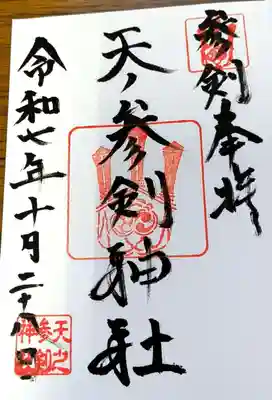 参剣奉拝
天ノ参剣神社
令和七年十月二十八日
天之
参剣